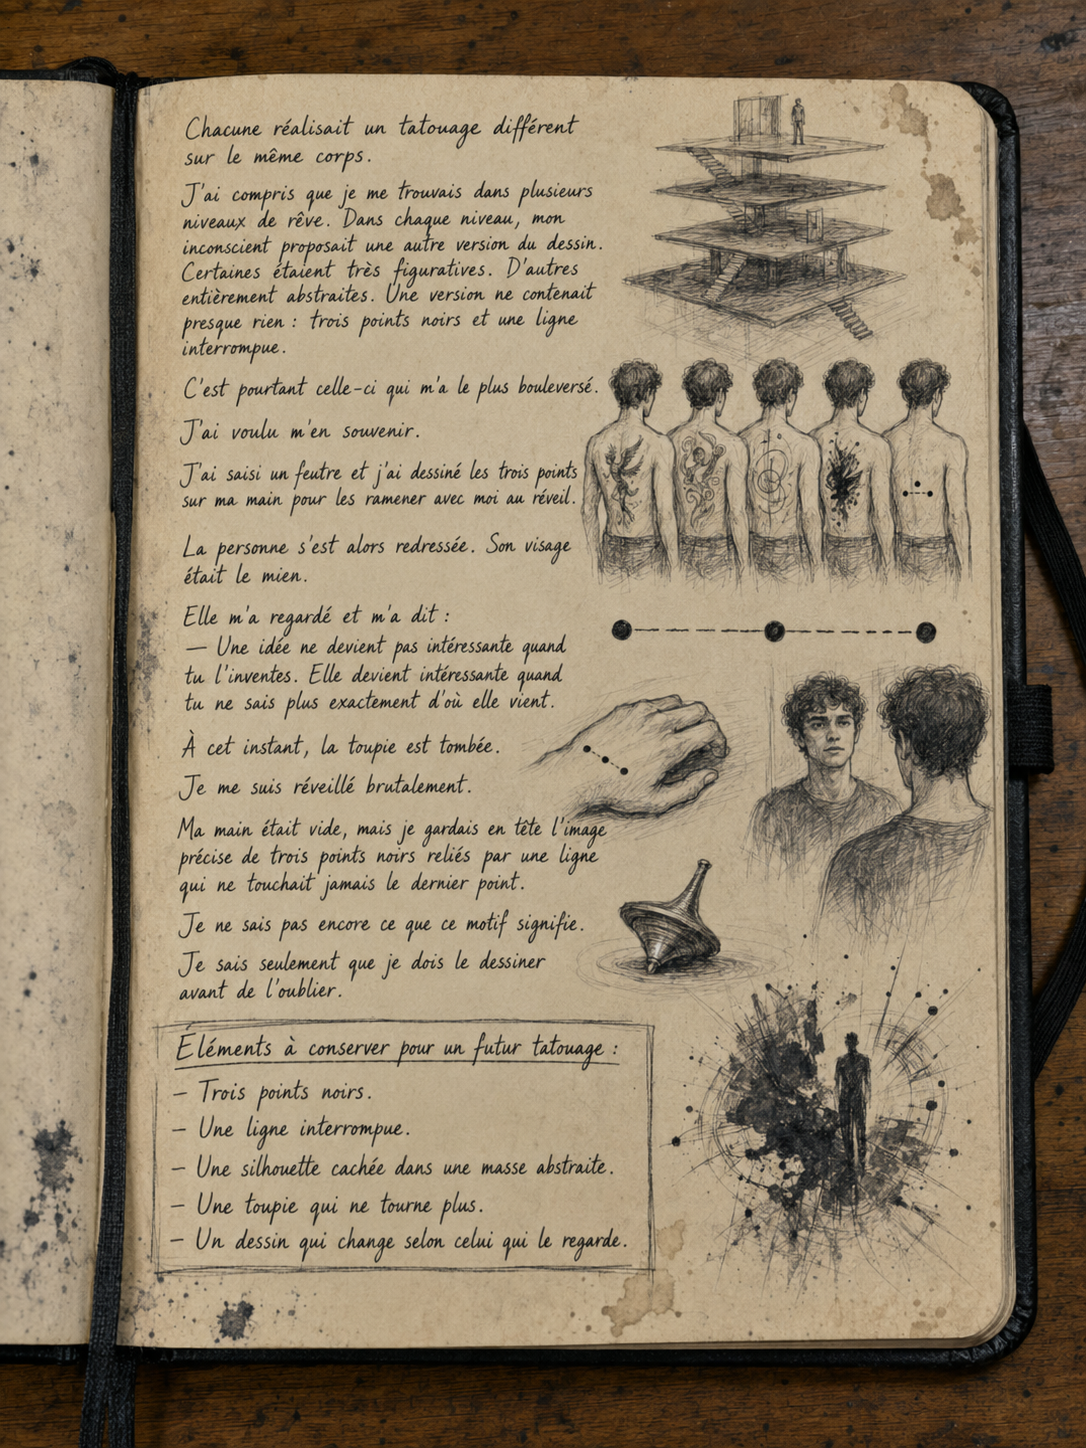 Chacune réalisait un tatouage différent
sur le même corps.
J'ai compris que je me trouvais dans plusieurs
niveaux de rêve. Dans chaque niveau, mon
inconscient proposait une autre version du dessin.
Certaines étaient très figuratives. D'autres
entièrement abstraites. Une version ne contenait
presque rien : trois points noirs et une ligne
interrompue.
C'est pourtant celle-ci qui m'a le plus bouleversé.
J'ai voulu m'en souvenir.
J'ai saisi un feutre et j'ai dessiné les trois points
sur ma main pour les ramener avec moi au réveil.
La personne s'est alors redressée. Son visage
était le mien.
Elle m'a regardé et m'a dit :
— Une idée ne devient pas intéressante quand
tu l'inventes. Elle devient intéressante quand
tu ne sais plus exactement d'où elle vient.
À cet instant, la toupie est tombée.
Je me suis réveillé brutalement.
Ma main était vide, mais je gardais en tête l'image
précise de trois points noirs reliés par une ligne
qui ne touchait jamais le dernier point.
Je ne sais pas encore ce que ce motif signifie.
Je sais seulement que je dois le dessiner
avant de l'oublier.
Éléments à conserver pour un futur tatouage :
– Trois points noirs.
– Une ligne interrompue.
– Une silhouette cachée dans une masse abstraite.
– Une toupie qui ne tourne plus.
– Un dessin qui change selon celui qui le regarde.